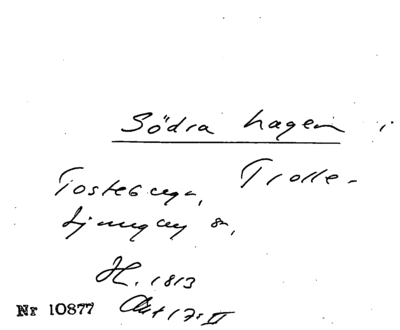 Södra hagen i
Tosteberga, Trolle-
Ljungby sn,
H. 1813
Akt 17: II
Nr 10877